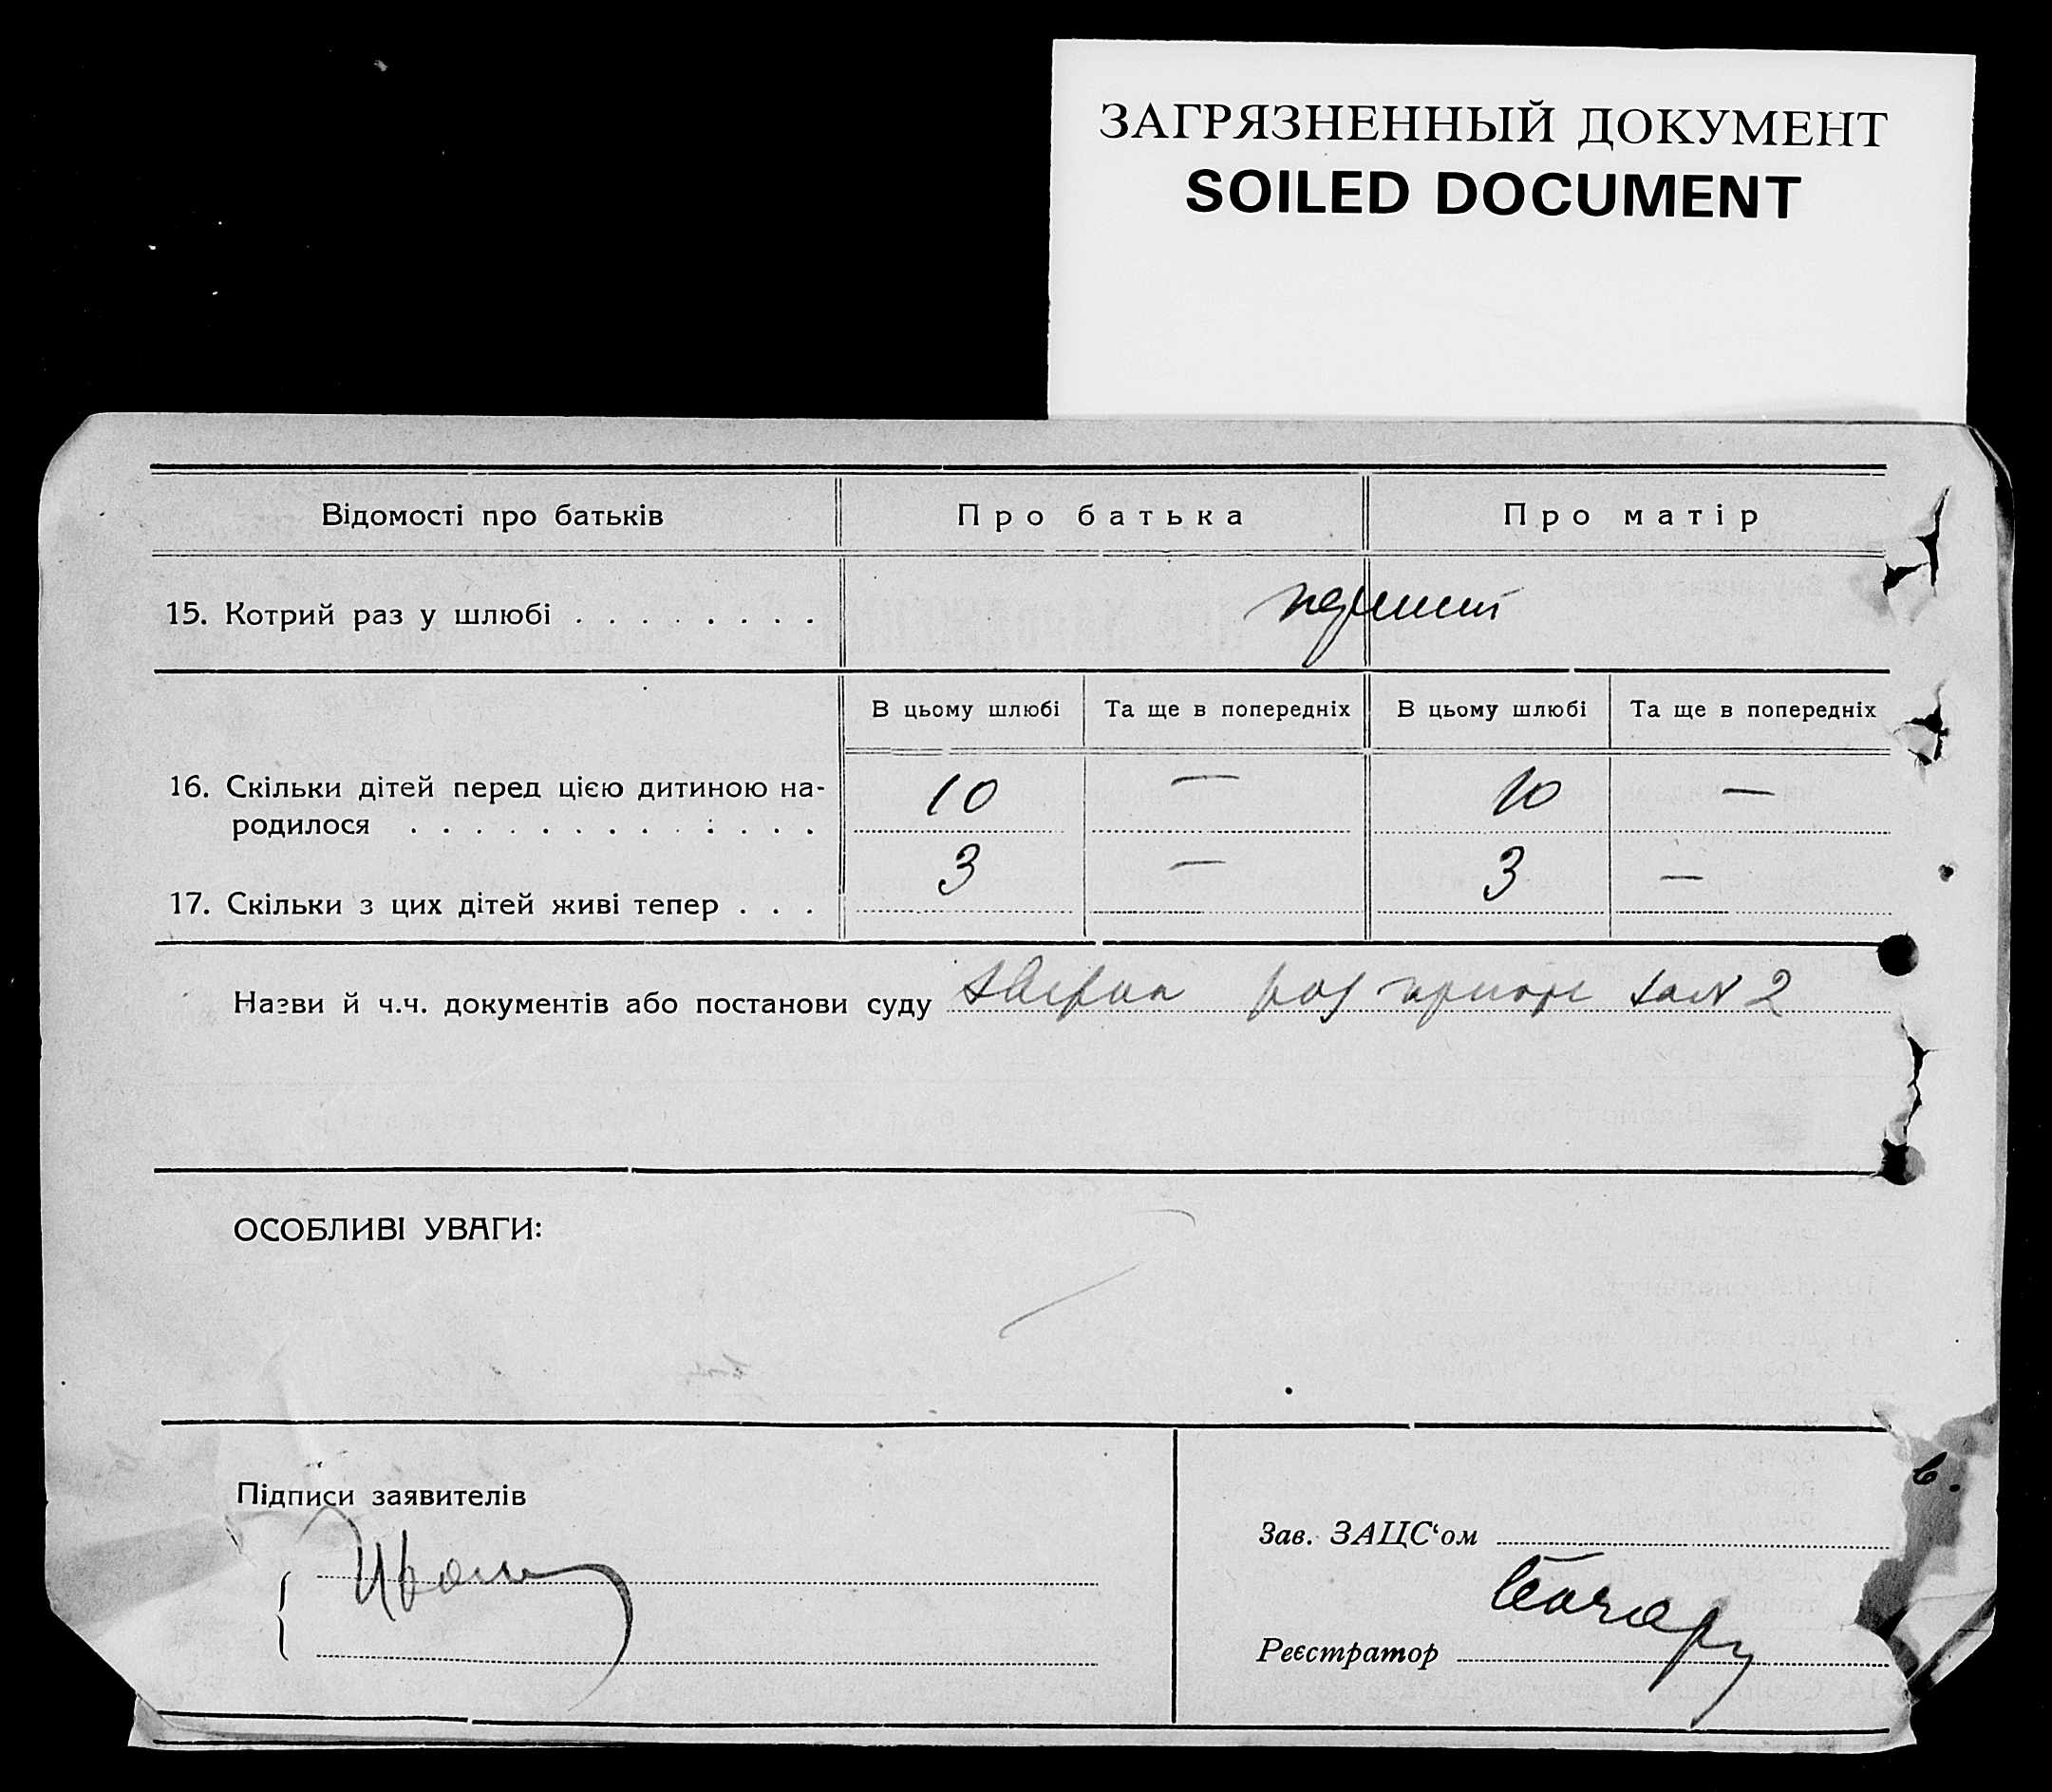 ЗАГРЯЗНЕННЫЙ ДОКУМЕНТ
SOILED DOCUMENT
Відомості про батьків Про батька Про матір
15. Котрий раз у шлюбі . . . . . . . . перший
В цьому шлюбі Та ще в попередніх В цьому шлюбі Та ще в попередніх
16. Скільки дітей перед цією дитиною на-
родилося . . . . . . . . . . . . . 10 — 10 —
17. Скільки з цих дітей живі тепер . . . 3 — 3 —
Назви й ч.ч. документів або постанови суду 2
ОСОБЛИВІ УВАГИ:
Підписи заявителів
Зав. ЗАЦС‘ом
Реєстратор